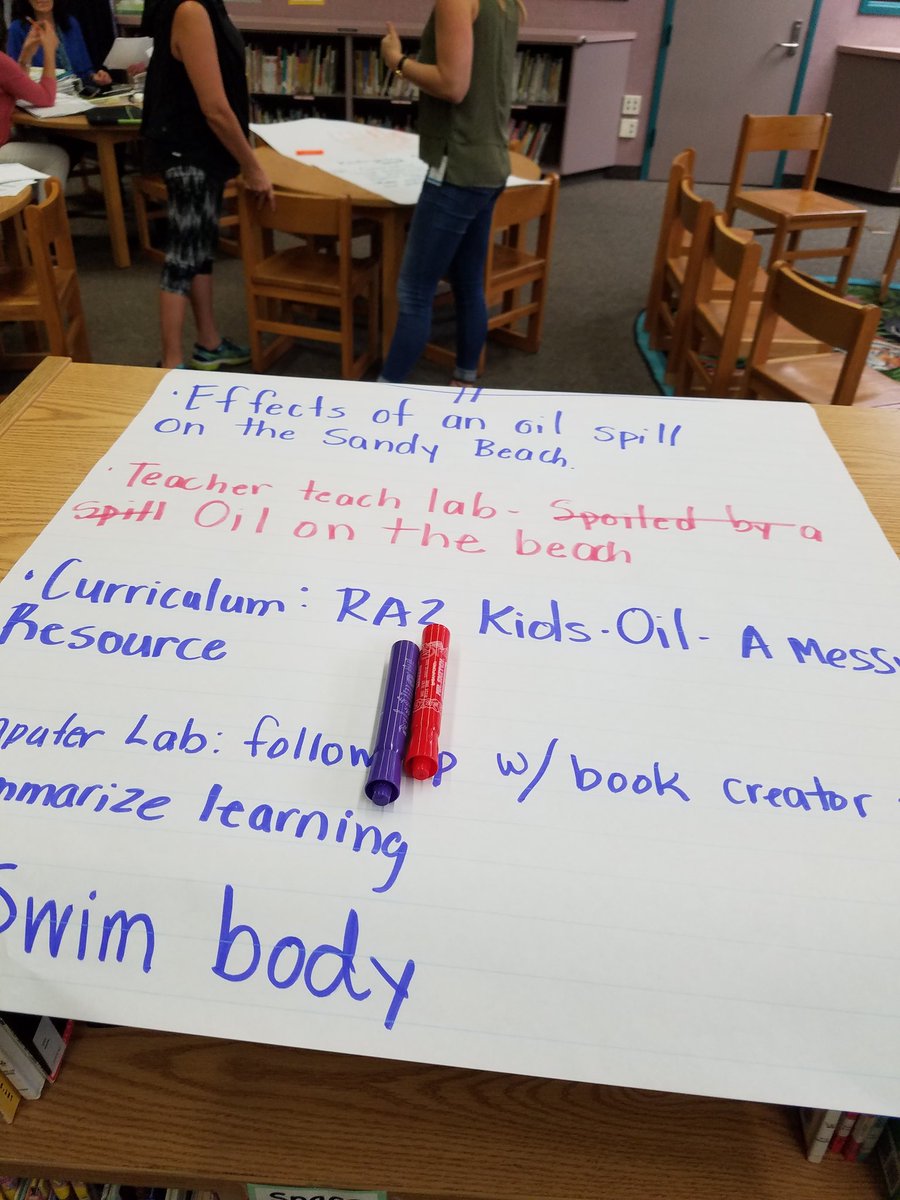 · Effects of an oil spill
on the Sandy Beach.
· Teacher teach lab - Spoiled by a
spill Oil on the beach
· Curriculum: RAZ Kids - Oil - A Mess
Resource
mputer Lab: follow p w/ book creator
mmarize learning
Swim body